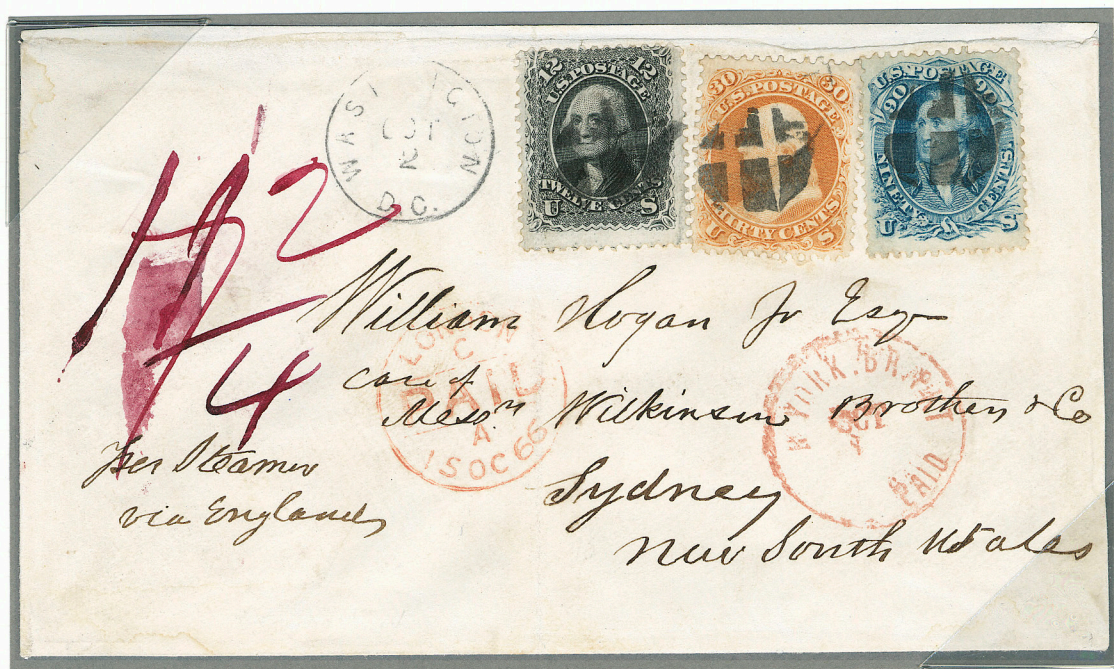 WASHINGTON
OCT
2
D.C.
12 12
U.S. POSTAGE
TWELVE CENTS
U S
30 30
U.S. POSTAGE
THIRTY CENTS
U S
90 90
U.S. POSTAGE
NINETY CENTS
U S
2
4
William Hogan Jr Esqr
care of
Messrs Wilkinson Brothers & Co
Sydney
New South Wales
Per Steamer
via England
LONDON
C
PAID
A
15 OC 66
N YORK. BR. PKT
OCT
PAID